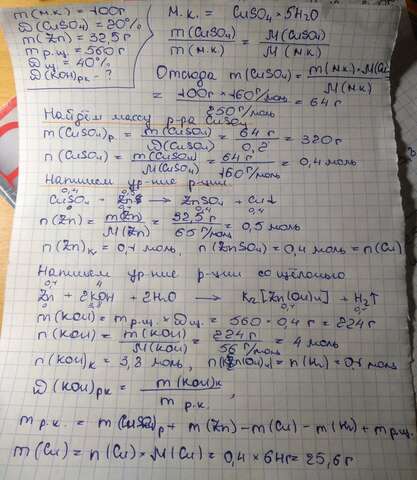 m(м.к.) = 100г
D(CuSO4) = 20%
m(Zn) = 32,5г
m р.щ. = 560г
D щ. = 40%
D(KOH)рк - ?
М.к. = CuSO4 * 5H2O
m(CuSO4) / m(м.к.) = M(CuSO4) / M(м.к.)
Отсюда m(CuSO4) = m(м.к.) * M(CuSO4) / M(м.к.)
= 100г * 160г/моль / 250г/моль = 64г
Найдём массу р-ра CuSO4
m(CuSO4)р = m(CuSO4) / D(CuSO4) = 64г / 0,2 = 320г
n(CuSO4) = m(CuSO4) / M(CuSO4) = 64г / 160г/моль = 0,4 моль
Напишем ур-ние р-ции.
0,4 0,5
CuSO4 + Zn → ZnSO4 + Cu↓
0 0,1 0,4 0,4
n(Zn) = m(Zn) / M(Zn) = 32,5г / 65г/моль = 0,5 моль
n(Zn)к = 0,1 моль, n(ZnSO4) = 0,4 моль = n(Cu)
Напишем ур-ние р-ции со щёлочью
0,1 4
Zn + 2KOH + 2H2O → K2[Zn(OH)4] + H2↑
0 3,8 0,1 0,1
m(KOH) = m р.щ. * D щ. = 560 * 0,4г = 224г
n(KOH) = m(KOH) / M(KOH) = 224г / 56г/моль = 4 моль
n(KOH)к = 3,8 моль, n(K2[Zn(OH)4]) = n(H2) = 0,1 моль
D(KOH)рк = m(KOH)к / m р.к. ,
m р.к. = m(CuSO4)р + m(Zn) - m(Cu) - m(H2) + m р.щ.
m(Cu) = n(Cu) * M(Cu) = 0,4 * 64г = 25,6г